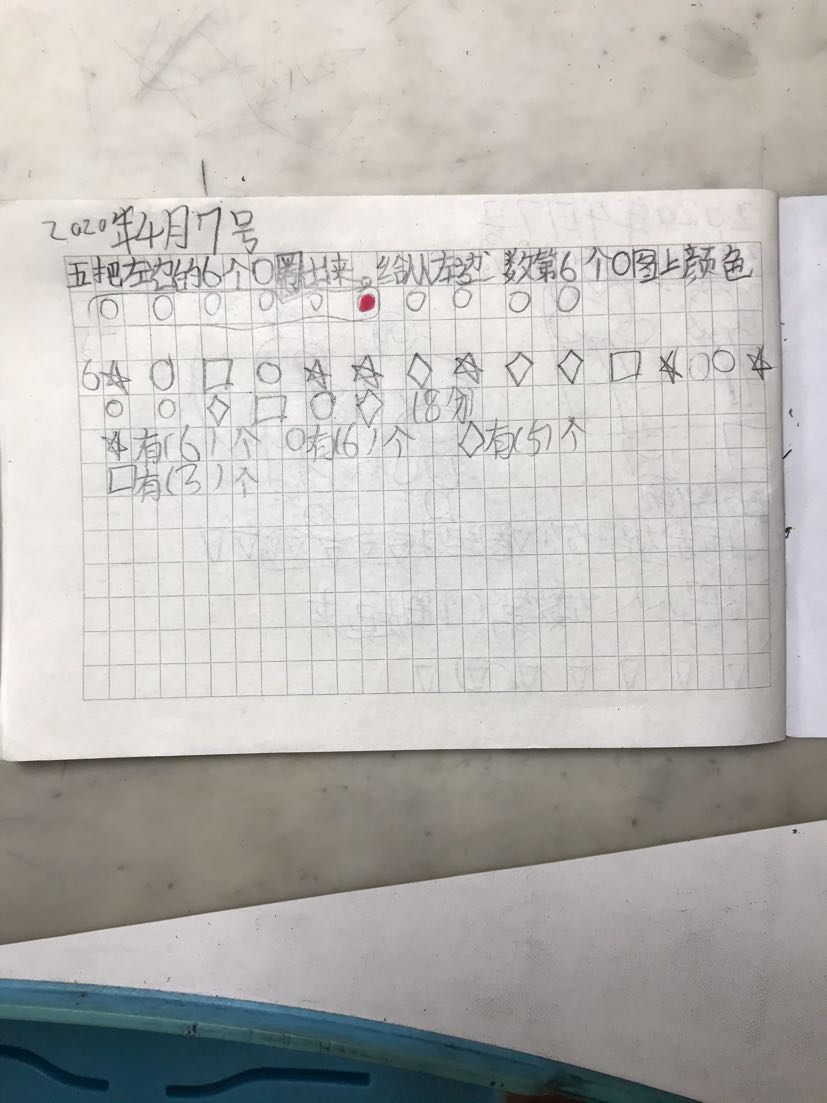 2020年4月7号
五把左边的6个○圈出来。给从左边数第6个○图上颜色
○ ○ ○ ○ ○ ● ○ ○ ○ ○
6☆ ○ □ ○ ☆ ☆ ◇ ☆ ◇ ◇ □ ☆ ○ ○ ☆
○ ○ ◇ □ ○ ◇ (8分)
☆有(6)个 ○有(6)个 ◇有(5)个
□有(3)个